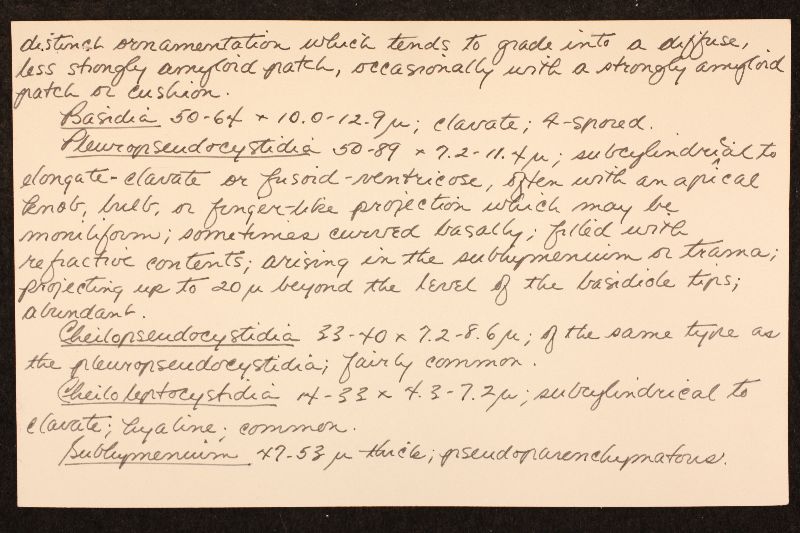 distinct ornamentation which tends to grade into a diffuse,
less strongly amyloid patch, occasionally with a strongly amyloid
patch or cushion.
Basidia 50-64 × 10.0-12.9 µ; clavate; 4-spored.
Pleuropseudocystidia 50-89 × 7.2-11.4 µ; subcylindrical to
elongate-clavate or fusoid-ventricose, often with an apical
knob, bulb, or finger-like projection which may be
moniliform; sometimes curved basally; filled with
refractive contents; arising in the subhymenium or trama;
projecting up to 20 µ beyond the level of the basidiole tips;
abundant.
Cheilopseudocystidia 33-40 × 7.2-8.6 µ; of the same type as
the pleuropseudocystidia; fairly common.
Cheiloleptocystidia 14-33 × 4.3-7.2 µ; subcylindrical to
clavate; hyaline; common.
Subhymenium 47-53 µ thick; pseudoparenchymatous.